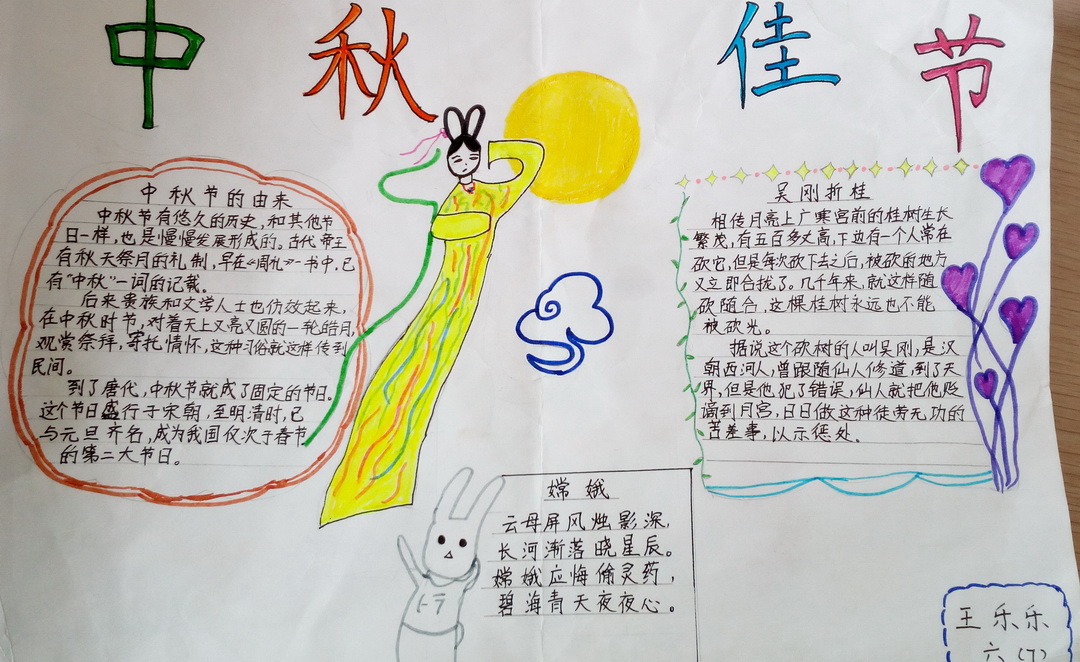 中秋佳节
中秋节的由来
中秋节有悠久的历史,和其他节
日一样,也是慢慢发展形成的。古代帝王
有秋天祭月的礼制,早在《周礼》一书中,已
有“中秋”一词的记载。
后来贵族和文学人士也仿效起来,
在中秋时节,对着天上又亮又圆的一轮皓月,
观赏祭拜,寄托情怀,这种习俗就这样传到
民间。
到了唐代,中秋节就成了固定的节日。
这个节日盛行于宋朝,至明清时,已
与元旦齐名,成为我国仅次于春节
的第二大节日。
吴刚折桂
相传月亮上广寒宫前的桂树生长
繁茂,有五百多丈高,下边有一个人常在
砍它,但是每次砍下去之后,被砍的地方
又立即合拢了。几千年来,就这样随
砍随合,这棵桂树永远也不能
被砍光。
据说这个砍树的人叫吴刚,是汉
朝西河人,曾跟随仙人修道,到了天
界,但是他犯了错误,仙人就把他贬
谪到月宫,日日做这种徒劳无功的
苦差事,以示惩处。
嫦娥
云母屏风烛影深,
长河渐落晓星辰。
嫦娥应悔偷灵药,
碧海青天夜夜心。
王乐乐
六(7)